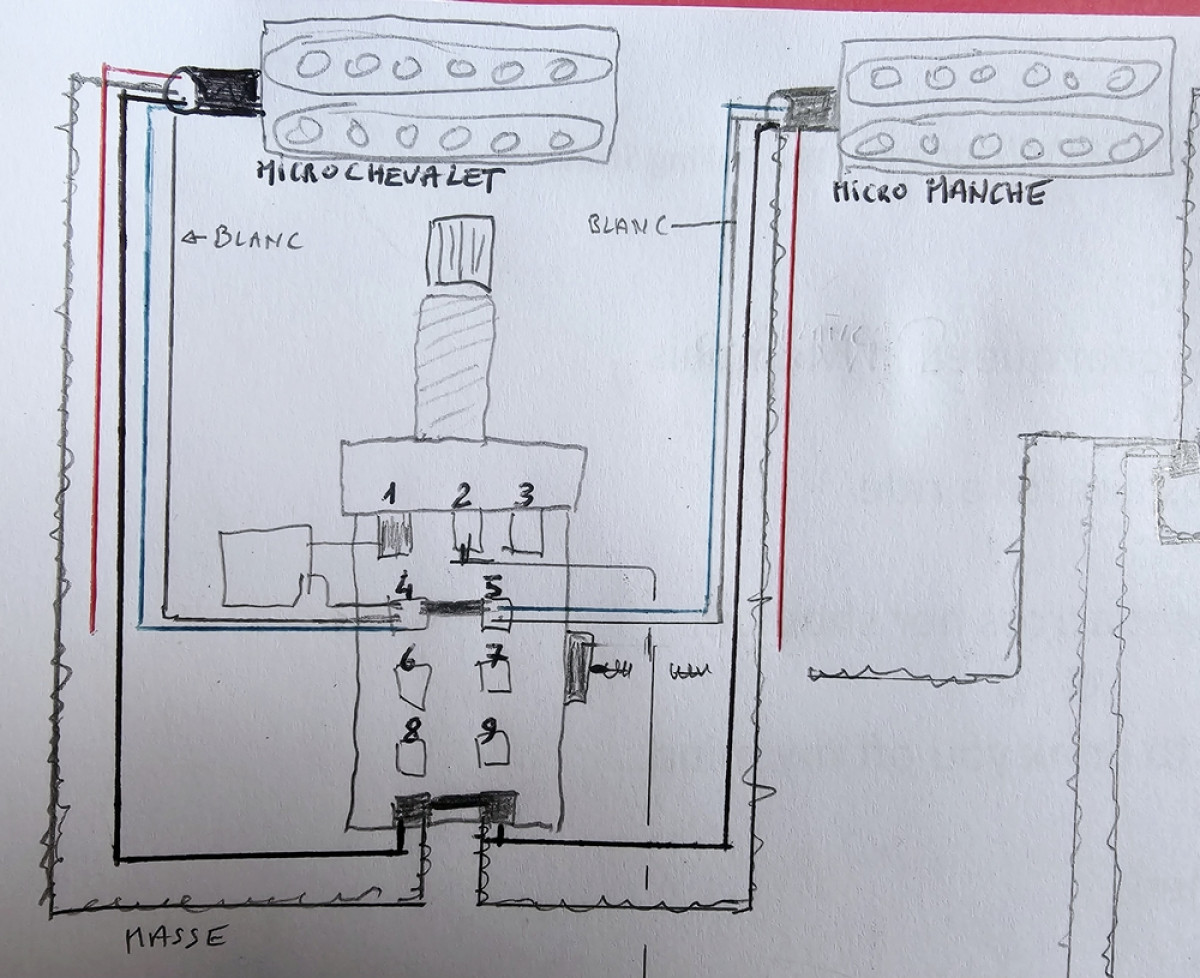 MICRO CHEVALET
MICRO MANCHE
BLANC
BLANC
1 2 3
4 5
6 7
8 9
MASSE